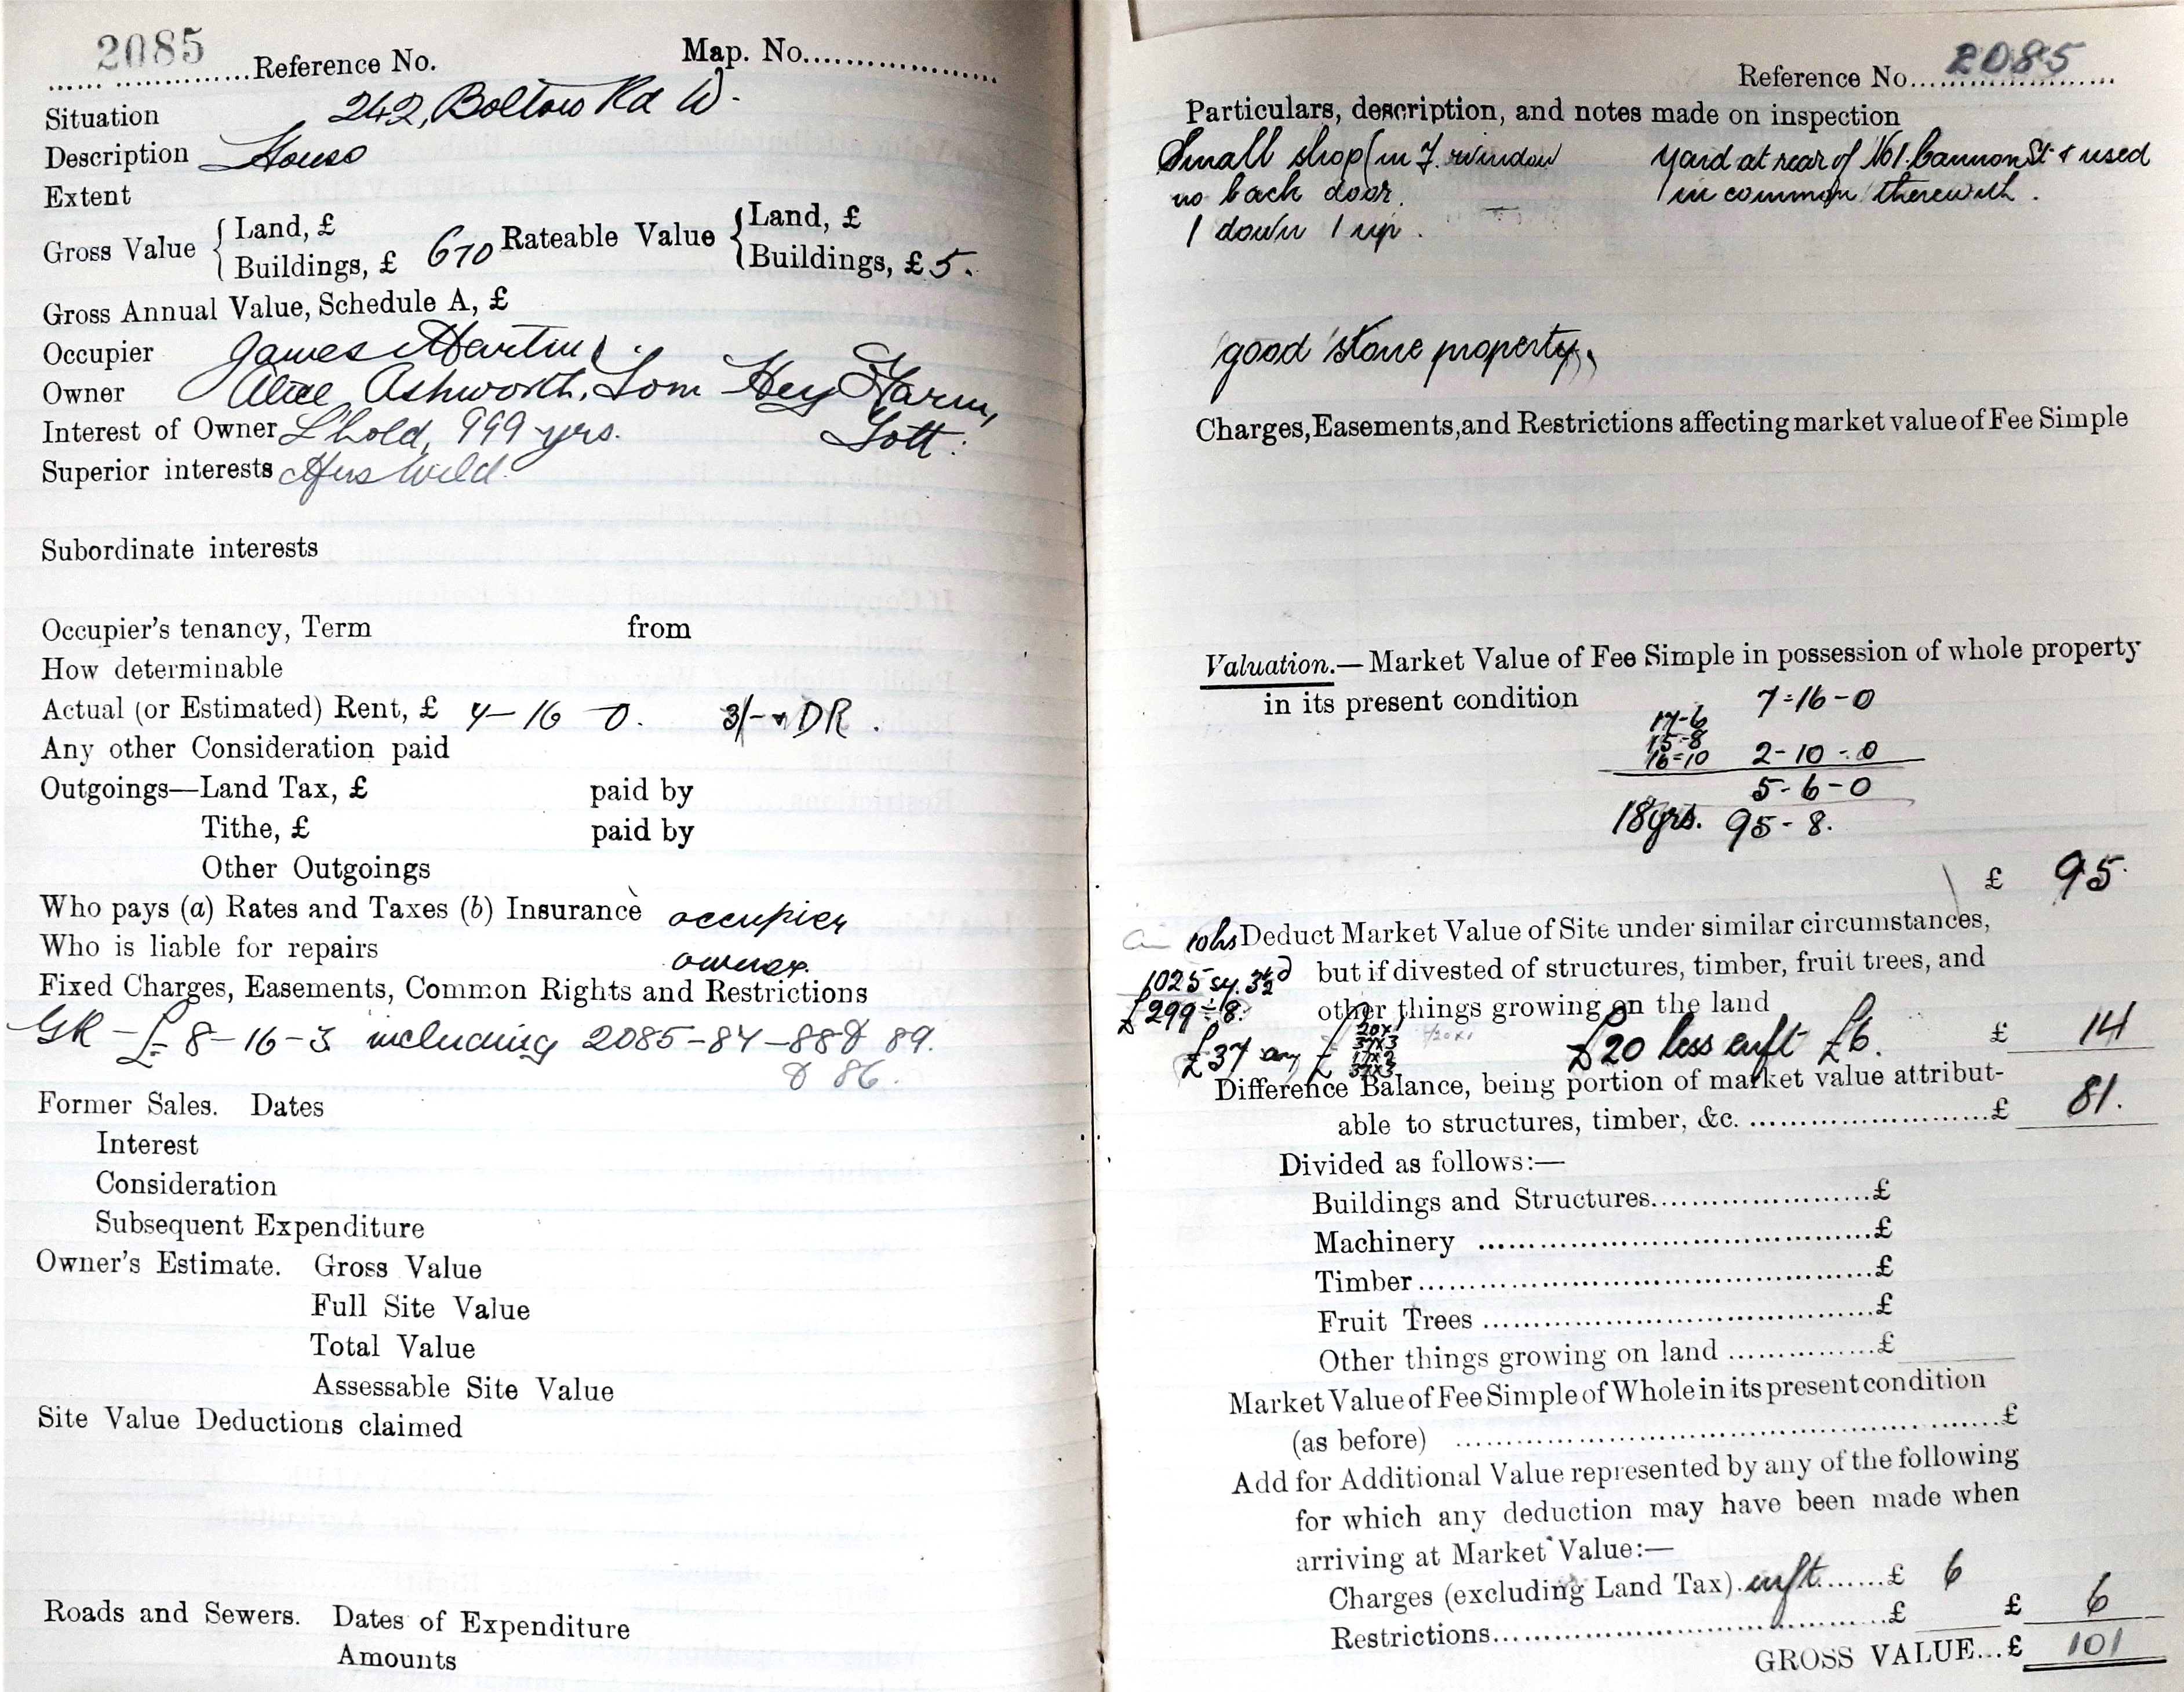 2085 Reference No. Map. No.
Situation 242, Bolton Rd W.
Description House
Extent
Gross Value { Land, £ Rateable Value { Land, £
Buildings, £ 6 10 Buildings, £ 5.
Gross Annual Value, Schedule A, £
Occupier James Martin
Owner Alice Ashworth, Lom Hey Farm,
Interest of Owner L'hold, 999 yrs. Tott:
Superior interests Wild
Subordinate interests
Occupier's tenancy, Term from
How determinable
Actual (or Estimated) Rent, £ 16 0. 3/- DR.
Any other Consideration paid
Outgoings—Land Tax, £ paid by
Tithe, £ paid by
Other Outgoings
Who pays (a) Rates and Taxes (b) Insurance occupier
Who is liable for repairs owner.
Fixed Charges, Easements, Common Rights and Restrictions
GR - £8-16-3 including 2085-84-88 & 89.
& 86.
Former Sales. Dates
Interest
Consideration
Subsequent Expenditure
Owner's Estimate. Gross Value
Full Site Value
Total Value
Assessable Site Value
Site Value Deductions claimed
Roads and Sewers. Dates of Expenditure
Amounts
Reference No. 2085
Particulars, description, and notes made on inspection
Small shop (in F. window yard at rear of No 1. Cannon St & used
no back door. in common therewith.
1 down 1 up.
good stone property.
Charges, Easements, and Restrictions affecting market value of Fee Simple
Valuation.— Market Value of Fee Simple in possession of whole property
in its present condition 7-16-0
17-6
15-8
16=10 2-10-0
5-6-0
18 yrs. 95-8.
£ 95.
10hs Deduct Market Value of Site under similar circumstances,
1025 sy. 3½d but if divested of structures, timber, fruit trees, and
£299÷8. other things growing on the land
£37 £20 less enft £6. £ 14
20x1
37x3
17x2
37x3
Difference Balance, being portion of market value attribut-
able to structures, timber, &c. £ 81.
Divided as follows:—
Buildings and Structures £
Machinery £
Timber £
Fruit Trees £
Other things growing on land £
Market Value of Fee Simple of Whole in its present condition
(as before) £
Add for Additional Value represented by any of the following
for which any deduction may have been made when
arriving at Market Value:—
Charges (excluding Land Tax) enft. £ 6
Restrictions £ £ 6
GROSS VALUE...£ 101